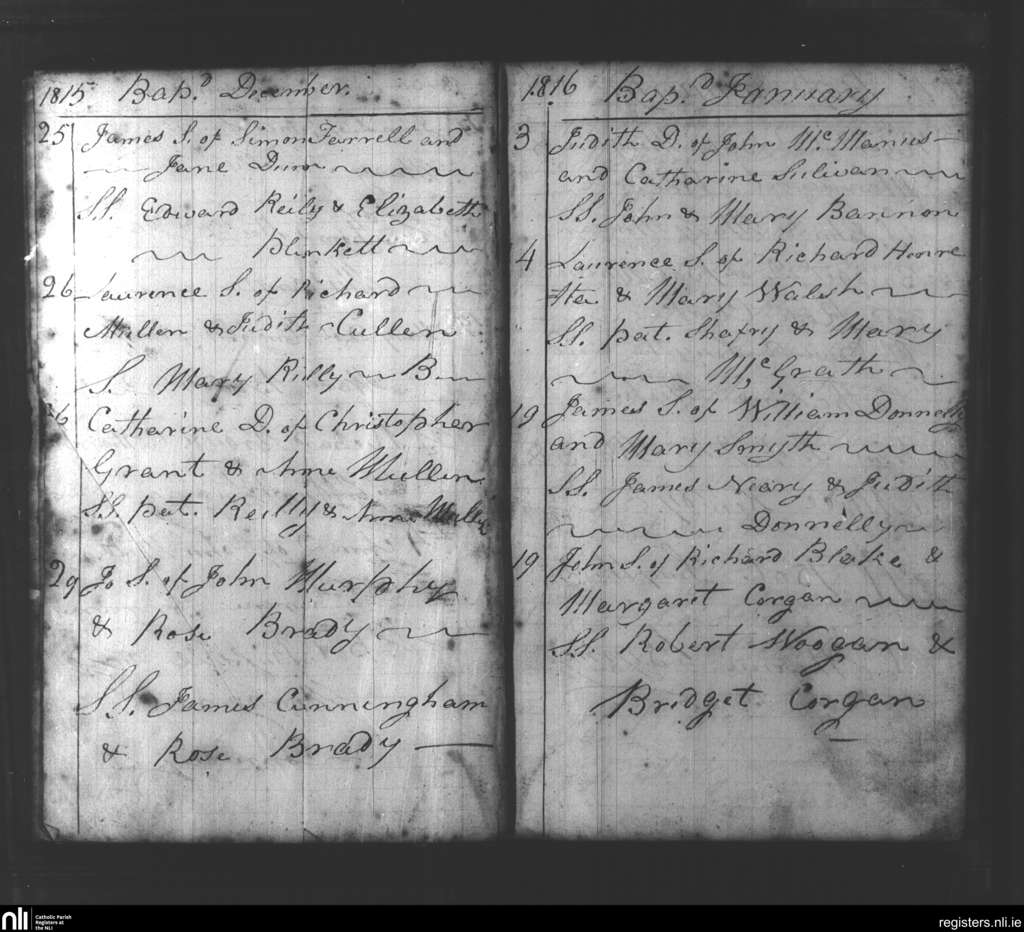 1815 Bap.d December.
25 James S. of Simon Farrell and
Jane Dunn
SS. Edward Reily & Elizabeth
Plunkett
26 Laurence S. of Richard
Mullen & Judith Cullen
S. Mary Rilly B.
26 Catharine D. of Christopher
Grant & Anne Mullen
SS. Pat. Reilly & Anne
29 Jo S. of John Murphy
& Rose Brady
SS. James Cunningham
& Rose Brady
1816 Bap.d January
3 Judith D. of John Mc. Manus
and Catharine Sulivan
SS. John & Mary Bannon
4 Laurence S. of Richard Henre
tta & Mary Walsh
SS. Pat. Shafry & Mary
Mc. Grath
19 James S. of William Donnelly
and Mary Smyth
SS. James Neary & Judith
Donnelly
19 John S. of Richard Blake &
Margaret Corgan
SS. Robert Woogan &
Bridget Corgan
nli Catholic Parish
Registers at
the NLI
registers.nli.ie